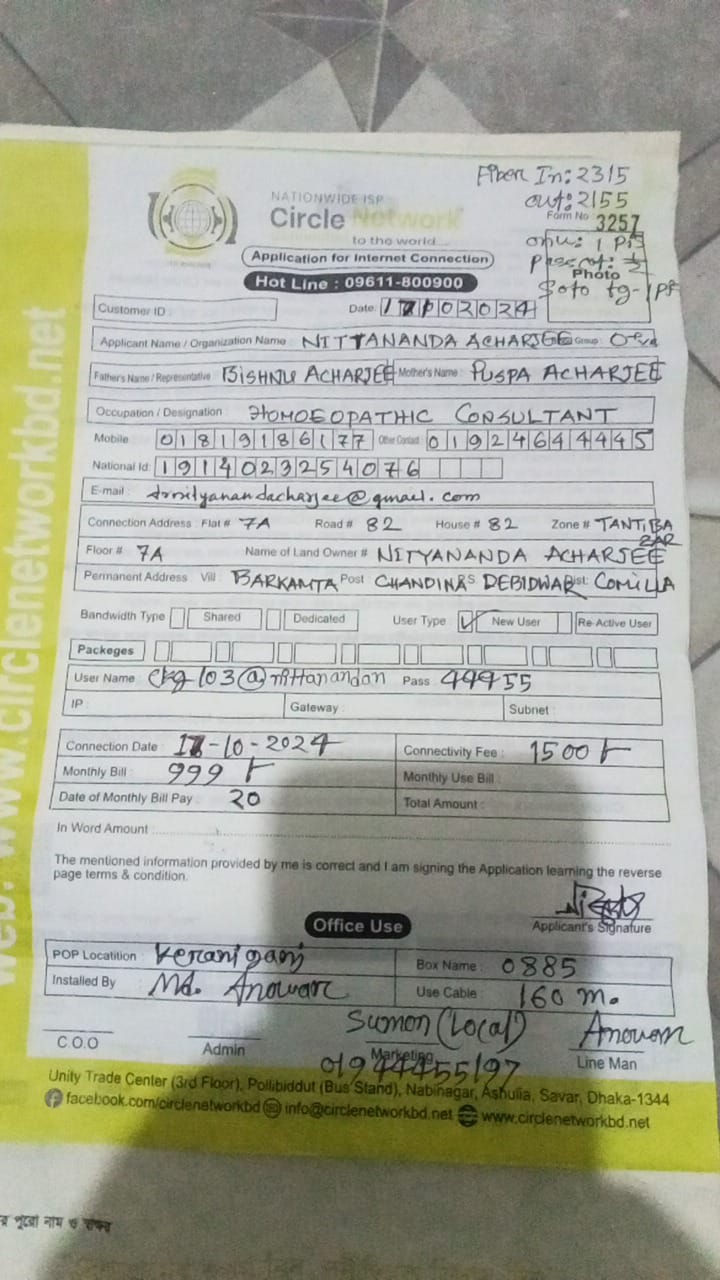 Fiber In: 2315
out: 2155
NATIONWIDE ISP
Circle Network
to the world...
Form No 3257
onu: 1 Pis
Photo
Application for Internet Connection
Hot Line : 09611-800900
Customer ID :
Date: 17102024
Applicant Name / Organization Name : NITYANANDA ACHARJEE Group:
Father's Name / Representative : BISHNU ACHARJEE Mother's Name : PUSPA ACHARJEE
Occupation / Designation : HOMOEOPATHIC CONSULTANT
Mobile 01819186177 Other Contact 01924644445
National Id: 1914023254076
E-mail : drnityanandacharjee@gmail.com
Connection Address : Flat # 7A Road # 82 House # 82 Zone # TANTIBA
ZAR
Floor # 7A Name of Land Owner # NITYANANDA ACHARJEE
Permanent Address Vill : BARKAMTA Post : CHANDINA PS DEBIDWAR Dist: COMILLA
Bandwidth Type Shared Dedicated User Type : ✓ New User Re-Active User
Packeges
User Name : ckg103@nittanandan Pass 44455
IP : Gateway : Subnet :
Connection Date : 17-10-2024 Connectivity Fee : 1500 t
Monthly Bill : 999 t Monthly Use Bill :
Date of Monthly Bill Pay : 20 Total Amount :
In Word Amount
The mentioned information provided by me is correct and I am signing the Application learning the reverse
page terms & condition.
Applicant's Signature
Office Use
POP Locatition : Keraniganj Box Name : 0885
Installed By : Md. Anowar Use Cable : 160 m.
Sumon (Local) Anowar
C.O.O Admin Marketing Line Man
01944455197
Unity Trade Center (3rd Floor), Pollibiddut (Bus Stand), Nabinagar, Ashulia, Savar, Dhaka-1344
facebook.com/circlenetworkbd info@circlenetworkbd.net www.circlenetworkbd.net
web: www.circlenetworkbd.net
র পুরো নাম ও স্বাক্ষর